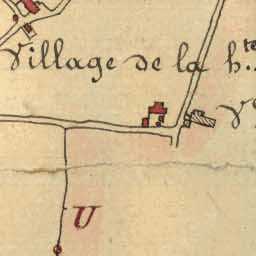 Village de la h.te
U